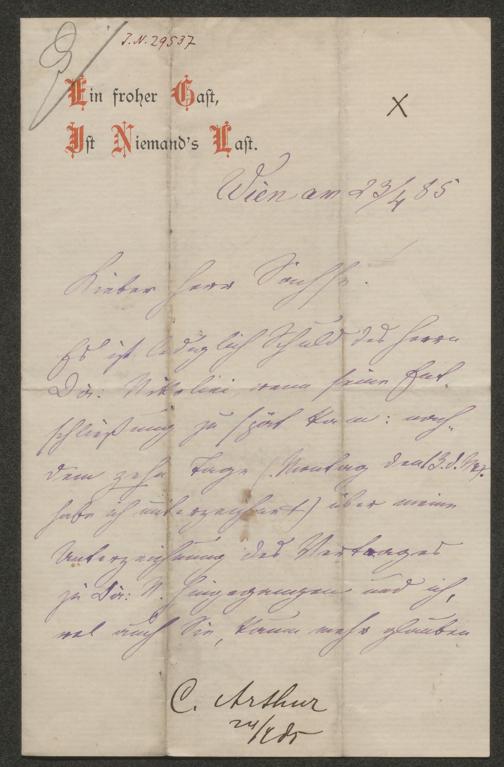 J.N. 29537
Ein froher Gast,
Ist Niemand's Last.
X
Wien am 23/4 85
Lieber Herr
Es ist lediglich Schuld des Herrn
Dir: wenn seine Ent-
schließung zu spät kam: nach-
dem zehn Tage (Montag den 13. d.
habe ich unterzeichnet) über meine
Unterzeichnung des Vertrages
zu Dir: N. hingegangen und ich,
wel auch Sie, kaum mehr glauben
C. Arthur
24/4 85